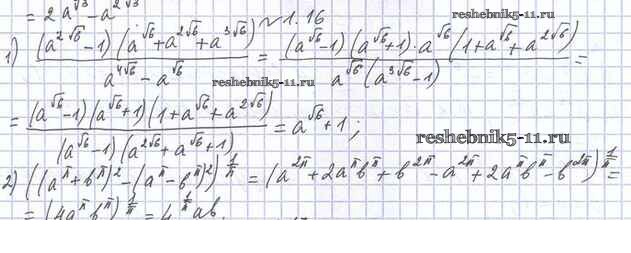 = 2a^√3 − a^2√3
№1.16
reshebnik5-11.ru
1) (a^2√6 − 1)(a^√6 + a^2√6 + a^3√6) / (a^4√6 − a^√6) = (a^√6 − 1)(a^√6 + 1)·a^√6(1 + a^√6 + a^2√6) / (a^√6(a^3√6 − 1)) =
reshebnik5-11.ru
= (a^√6 − 1)(a^√6 + 1)(1 + a^√6 + a^2√6) / ((a^√6 − 1)(a^2√6 + a^√6 + 1)) = a^√6 + 1;
reshebnik5-11.ru
2) ((a^π + b^π)^2 − (a^π − b^π)^2)^(1/π) = (a^2π + 2a^π b^π + b^2π − a^2π + 2a^π b^π − b^2π)^(1/π) =
= (4a^π b^π)^(1/π) = 4^(1/π) ab.